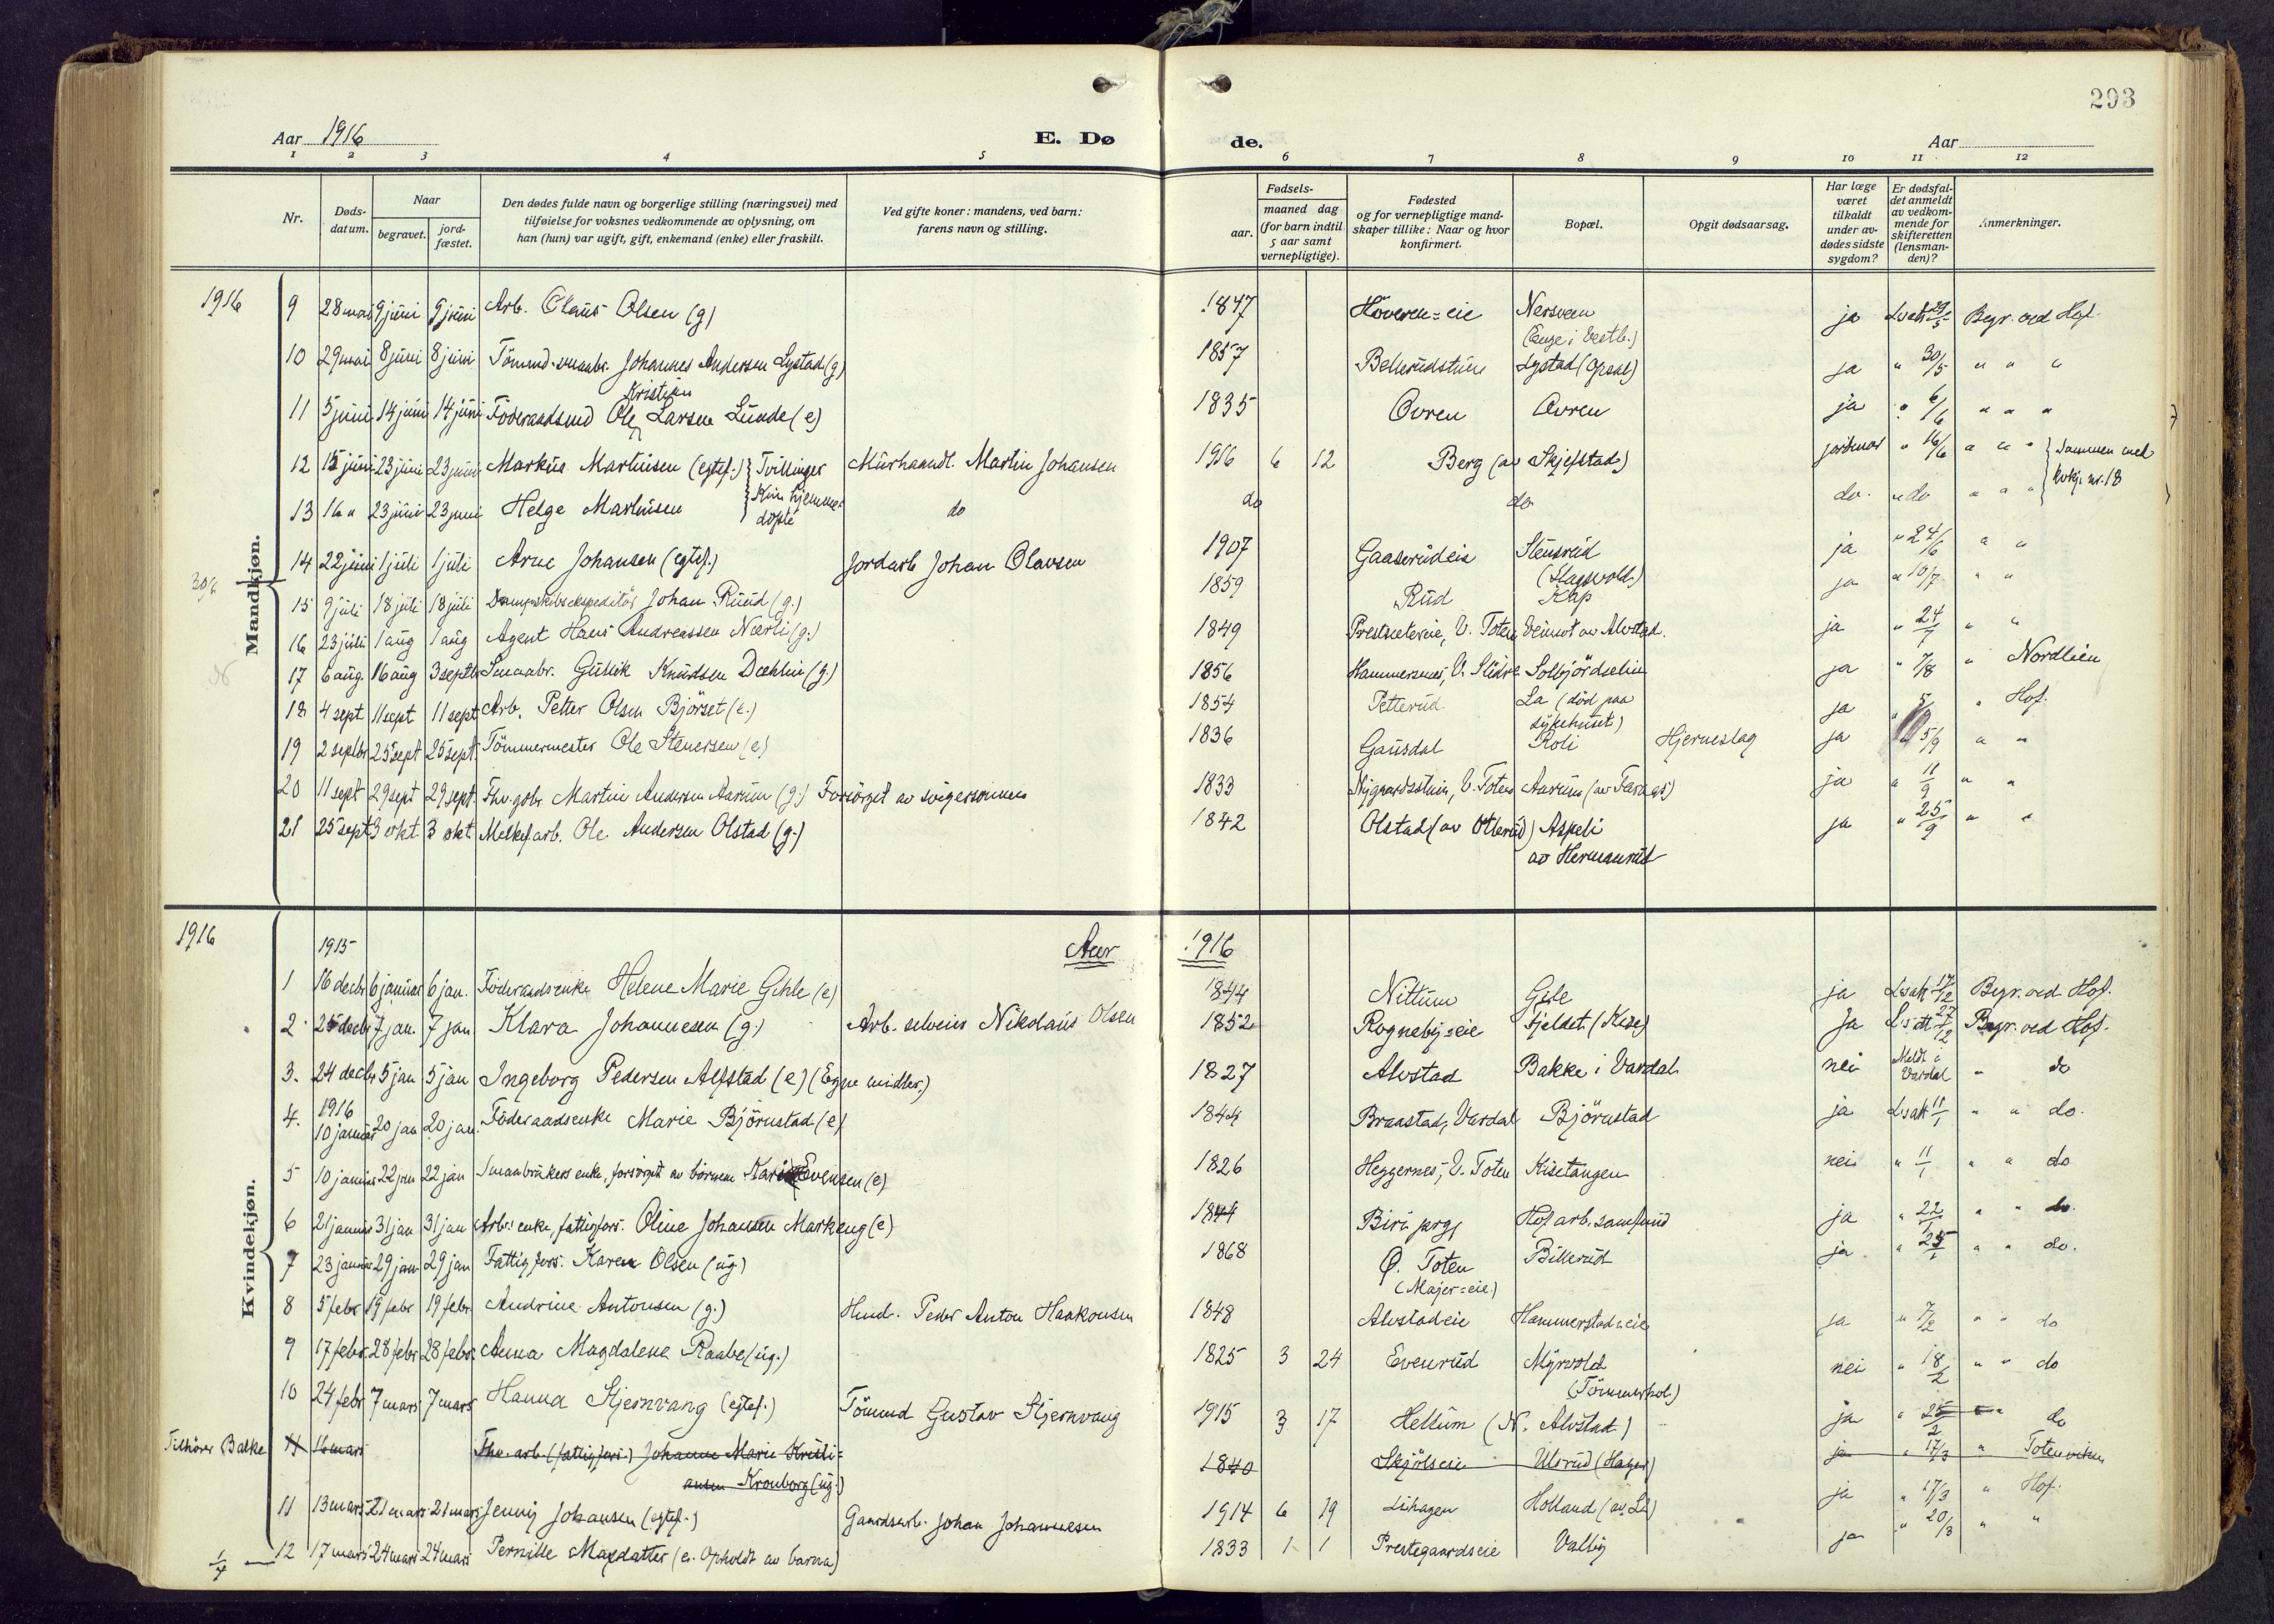 293
Aar 1916 E. Dø de. Aar
1 2 3 4 5 6 7 8 9 10 11 12
Nr.
Døds-
datum.
Naar
begravet.
jord-
fæstet.
Den dødes fulde navn og borgerlige stilling (næringsvei) med
tilføielse for voksnes vedkommende av oplysning, om
han (hun) var ugift, gift, enkemand (enke) eller fraskilt.
Ved gifte koner: mandens, ved barn:
farens navn og stilling.
Fødsels-
aar.
maaned dag
(for barn indtil
5 aar samt
vernepligtige).
Fødested
og for vernepligtige mand-
skaper tillike: Naar og hvor
konfirmert.
Bopæl.
Opgit dødsaarsag.
Har læge
været
tilkaldt
under av-
dødes sidste
sygdom?
Er dødsfal-
det anmeldt
av vedkom-
mende for
skifteretten
(lensman-
den)?
Anmerkninger.
Mandkjøn.
1916 9 28 mai 9 juni 9 juni Arb. Olaus Olsen (g) 1847 Höveren=eie Nersveen ja Lsatt 29/5 Begr. ved Hof.
(Enge i Vestb.)
10 29 mai 8 juni 8 juni Tömmd. smaabr. Johannes Andersen Lystad (g) 1857 Lystad (Opsal) ja " 30/5 " " "
Kristian
11 5 juni 14 juni 14 juni Föderaadsmd Ole Larsen Lunde (e) 1835 Ovren Ovren ja " 6/6 " " "
12 15 juni 23 juni 23 juni Markus Martinsen (egtef.) Tvillinger Murhaandl. Martin Johansen 1916 6 12 Berg (av Skjefstad) jordmor " 16/6 " " " Sammen med
kvkj. nr. 18
13 16 " 23 juni 23 juni Helge Martinsen Kun hjemme-
döpte do do do do. " do " " "
14 22 juni 1 juli 1 juli Arne Johansen (egtef.) Jordarb Johan Olavsen 1907 Gaaserudeie Stensrud ja " 24/6 " "
(Slagsvold)
30/6
15 9 juli 18 juli 18 juli Dampskibsekspeditör Johan Ruud (g.) 1859 Rud Kap ja " 10/7 " "
16 23 juli 1 aug 1 aug Agent Hans Andreassen Nærli (g.) 1849 Prestsætereie, V. Toten Veimot av Alvstad. ja " 24/7 " "
17 6 aug. 16 aug 3 septbr Smaabr. Gullik Knudsen Dæhlin (g.) 1856 Hammersnes, V. Slidre Solbjördselien ja " 7/8 " Nordlien
18 4 sept 11 sept 11 sept Arb. Petter Olsen Björset (e.) 1854 Petterud La (död paa ja " 5/9 " Hof.
sykehuset)
19 2 septbr 25 sept 25 sept. Tömmermester Ole Stenersen (e) 1836 Gausdal Roli Hjerneslag ja " 5/9 " "
20 11 sept 29 sept 29 sept. Fhv. gbr. Martin Andersen Aarum (g.) Forsörget av svigersönnen 1833 Nygaardsstuen, V. Toten Aarum (av Faraas) ja " 11/9 " "
21 25 sept 3 okt 3 okt Melkef.arb. Ole Andersen Olstad (g.) 1842 Olstad (av Otterud) Aspeli ja " 25/9 " "
av Hermanrud
Kvindekjøn.
1916 1915 Aar 1916
1 16 decbr 6 januar 6 jan. Föderaadsenke Helene Marie Gihle (e) 1844 Nittum Gile ja Lsatt 17/12 Begr. ved Hof.
2 25 decbr 7 jan. 7 jan Klara Johannesen (g) Arb. selveier Nikolaus Olsen 1852 Rognebij=eie Fjeldet (Kise) Ja Lsatt 27/12 Begr. ved Hof.
3. 24 decbr 5 jan 5 jan Ingeborg Pedersen Alfstad (e) (Egne midler.) 1827 Alvstad Bakke i Vardal nei Meldt i
Vardal " do
1916
4. 10 januar 20 jan 20 jan. Föderaadsenke Marie Björnstad (e) 1844 Braastad, Vardal Björnstad ja Lsatt 11/1 " " do.
5 10 januar 22 jan 22 jan Smaabrukers enke, forsörget av börnene Kari Evensen (e) 1826 Heggernes, V. Toten Kisetangen nei " 11/1 " " do
6 21 januar 31 jan 31 jan Arb.s enke, fattigfors. Oline Johansen Markeng (e) 1844 Biri prgj Hof arb. samfund ja " 22/1 " " do.
7 23 januar 29 jan 29 jan Fattigfors. Karen Olsen (ug.) 1868 Ø. Toten Billerud ja " 25/1 " " do.
(Majer=eie)
8 5 febr 19 febr 19 febr. Andrine Antonsen (g.) Hmd. Peder Anton Haakonsen 1848 Alvstadeie Hammerstadeie ja " 7/2 " " do
9 17 febr. 28 febr 28 febr. Anna Magdalena Raabe (ug.) 1825 3 24 Evenrud Myrvold nei " 18/2 " " do
(Tömmerhol.)
10 24 febr 7 mars 7 mars Hanna Stjernvang (egtef.) Tömmd Gustav Stjernvang 1915 3 17 Hellum (N. Alvstad) ja " 25/2 " " do
Tilhörer Balke 11 16 mars Fhv. arb. (fattigfors.) Johanne Marie Kristi=
ansen Kronborg (ug.) 1840 Skjölseie Ulsrud (Hager) ja " 17/3 " Totenviken
11 13 mars 21 mars 21 mars Jenny Johansen (egtef.) Gaardsarb. Johan Johannesen 1914 6 19 Lihagen Holland (av La) ja " 17/3 " Hof.
1/4 — 12 17 mars 24 mars 24 mars Pernille Maxdatter (e. Opholdt av barna) 1833 1 1 Prestegaardseie Valby ja " 20/3 " "